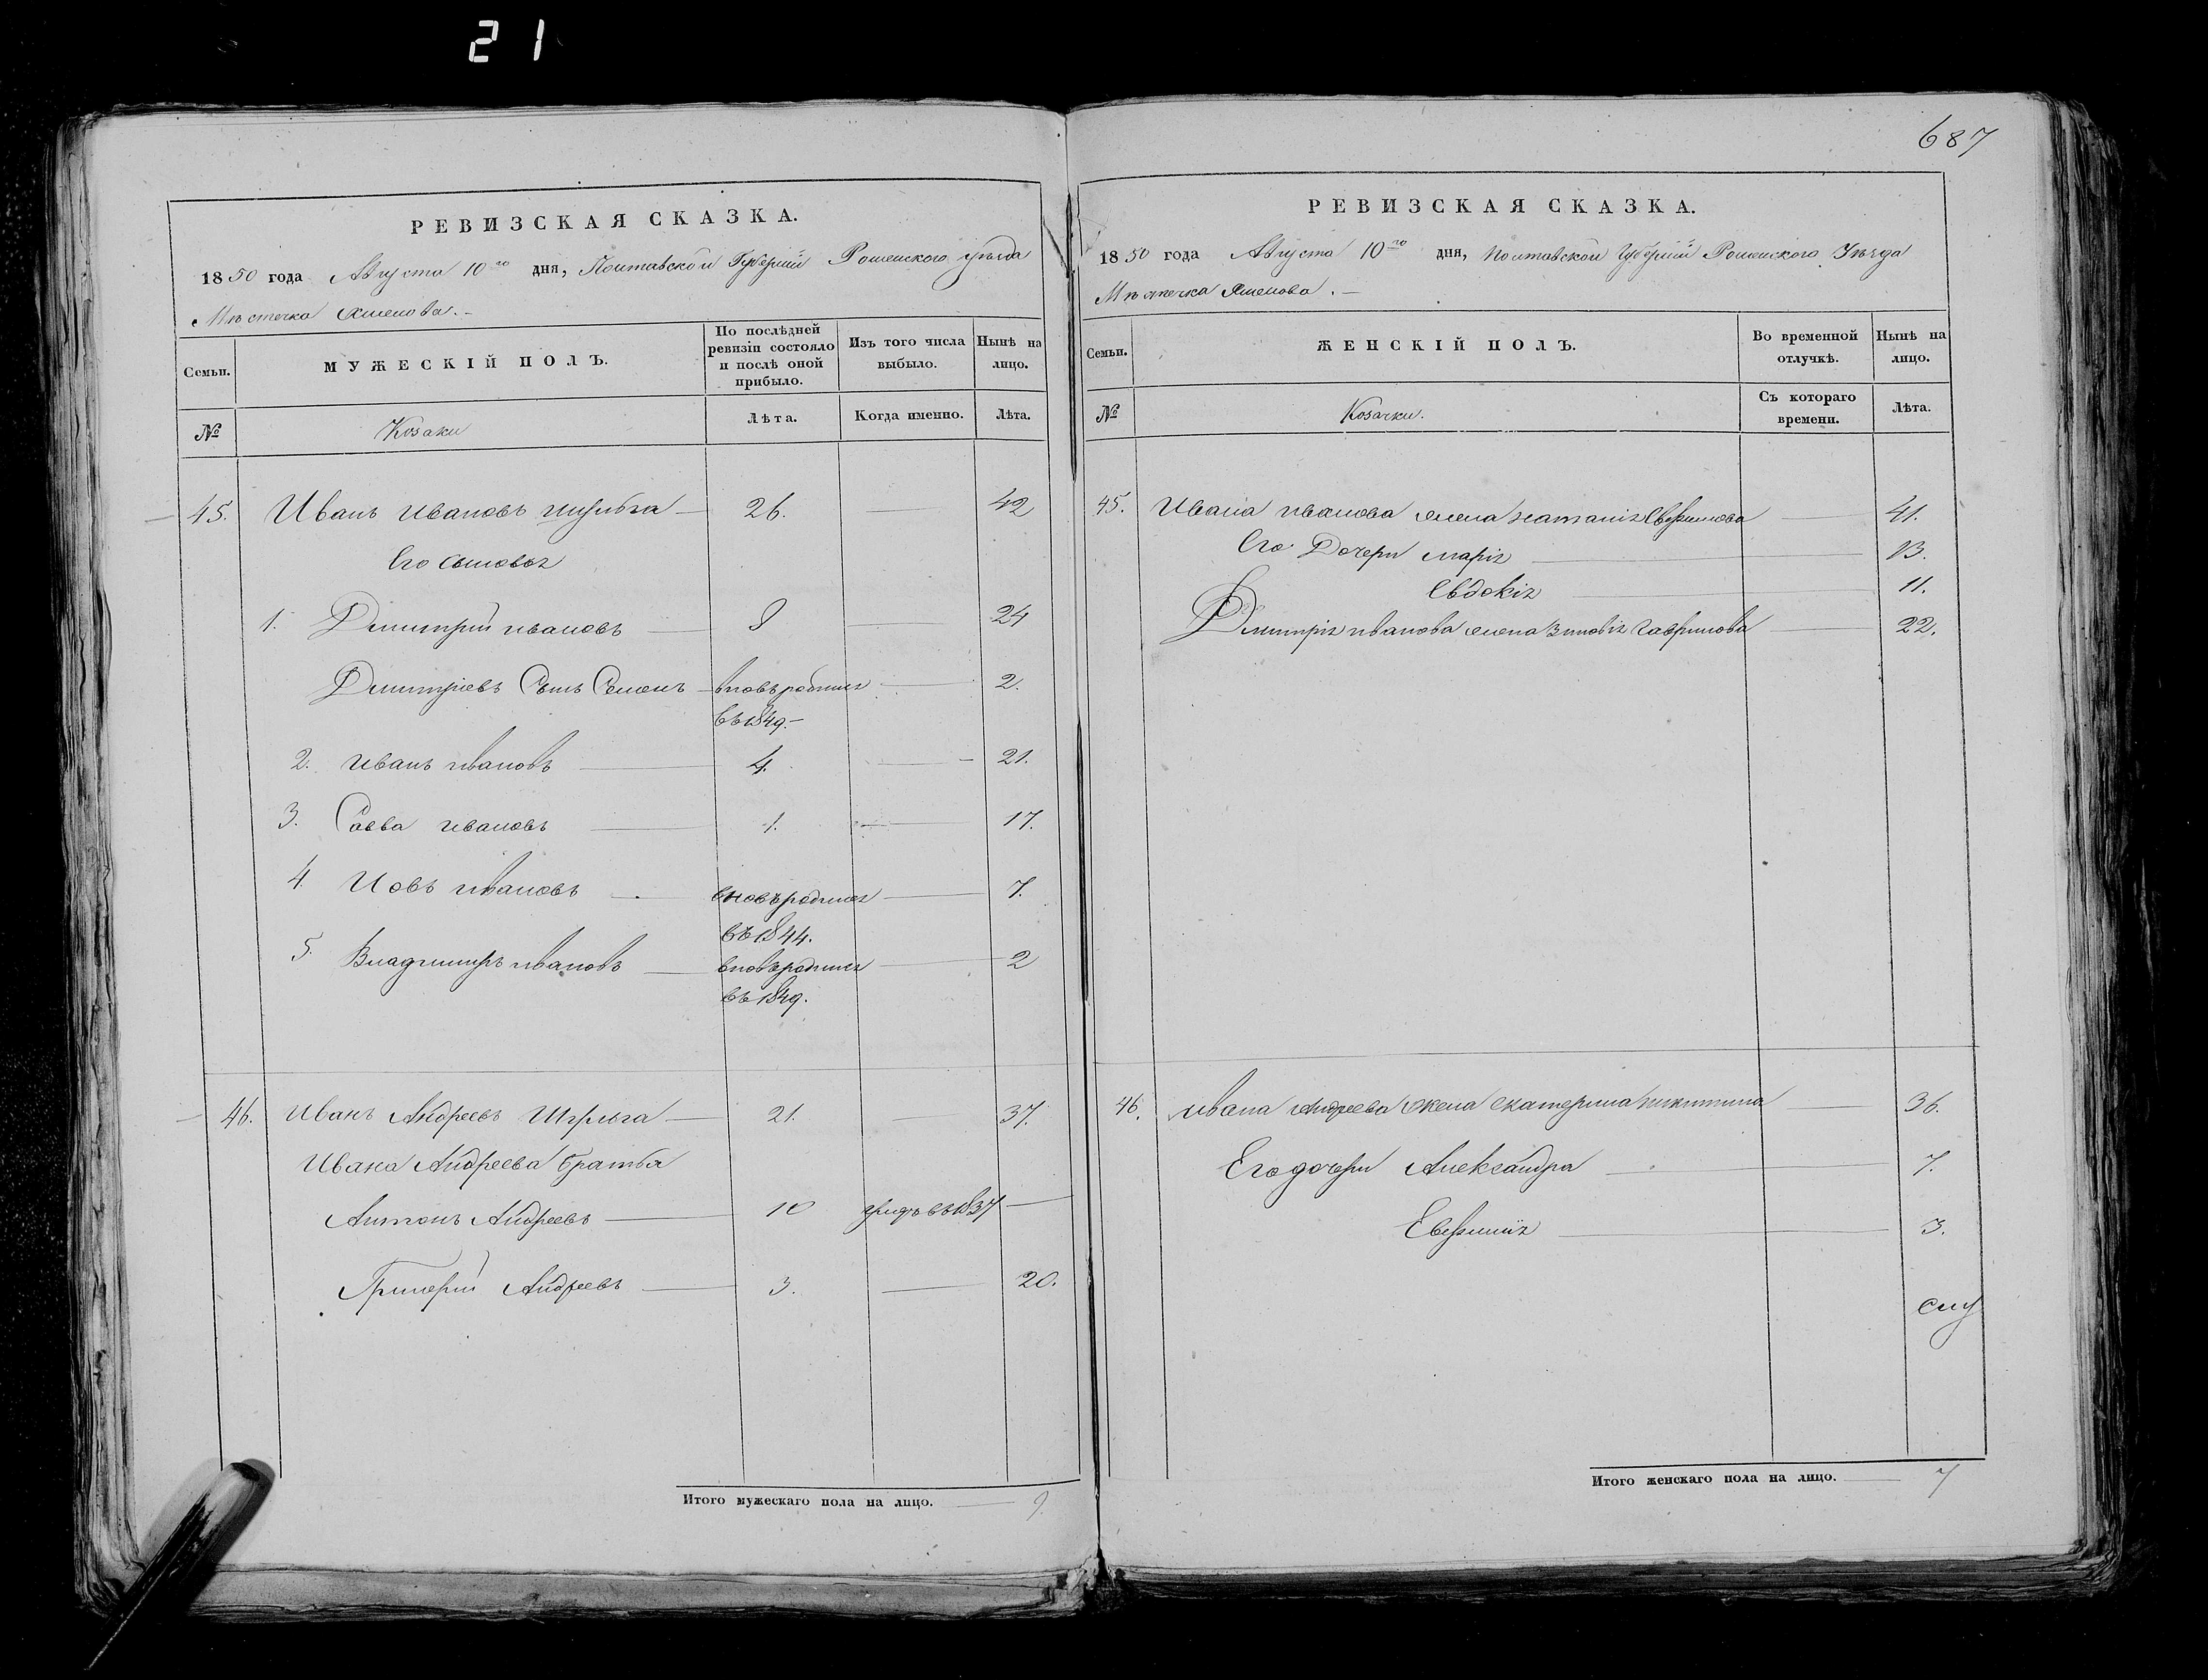 21
687
РЕВИЗСКАЯ СКАЗКА.
1850 года Августа 10го дня, Полтавской Губерніи Роменского уѣзда
Мѣстечка
Семьи. МУЖЕСКІЙ ПОЛЪ. По послѣдней ревизіи состояло и послѣ оной прибыло. Изъ того числа выбыло. Нынѣ на лицо.
№ Козаки Лѣта. Когда именно. Лѣта.
45. Иванъ Ивановъ 26. 42
Его сыновья
1. Димитрій Ивановъ 8 24
Димитріевъ Сынъ Семенъ вновьродился 2.
въ 1849.
2. Иванъ Ивановъ 4. 21.
3. Савва Ивановъ 1. 17.
4. Іовъ Ивановъ вновьродился 7.
въ 1844.
5. Владимиръ Ивановъ вновьродился 2
въ 1849.
46. Иванъ Андреевъ 21. 37.
Ивана Андреева братья
Антонъ Андреевъ 10 въ 1837
Григорій Андреевъ 3. 20.
Итого мужескаго пола на лицо. 9.
РЕВИЗСКАЯ СКАЗКА.
1850 года Августа 10го дня, Полтавской Губерніи Роменского Уѣзда
Мѣстечка
Семьи. ЖЕНСКІЙ ПОЛЪ. Во временной отлучкѣ. Нынѣ на лицо.
№ Козачки. Съ котораго времени. Лѣта.
45. Ивана Иванова жена Наталія 41.
Его Дочери Марія 13.
Евдокія 11.
Димитрія Иванова жена Зиновія Гаврилова 22.
46. Ивана Андреева жена Екатерина Никитина 36.
Его дочери Александра 7.
Евфимія 3.
Итого женскаго пола на лицо. 7